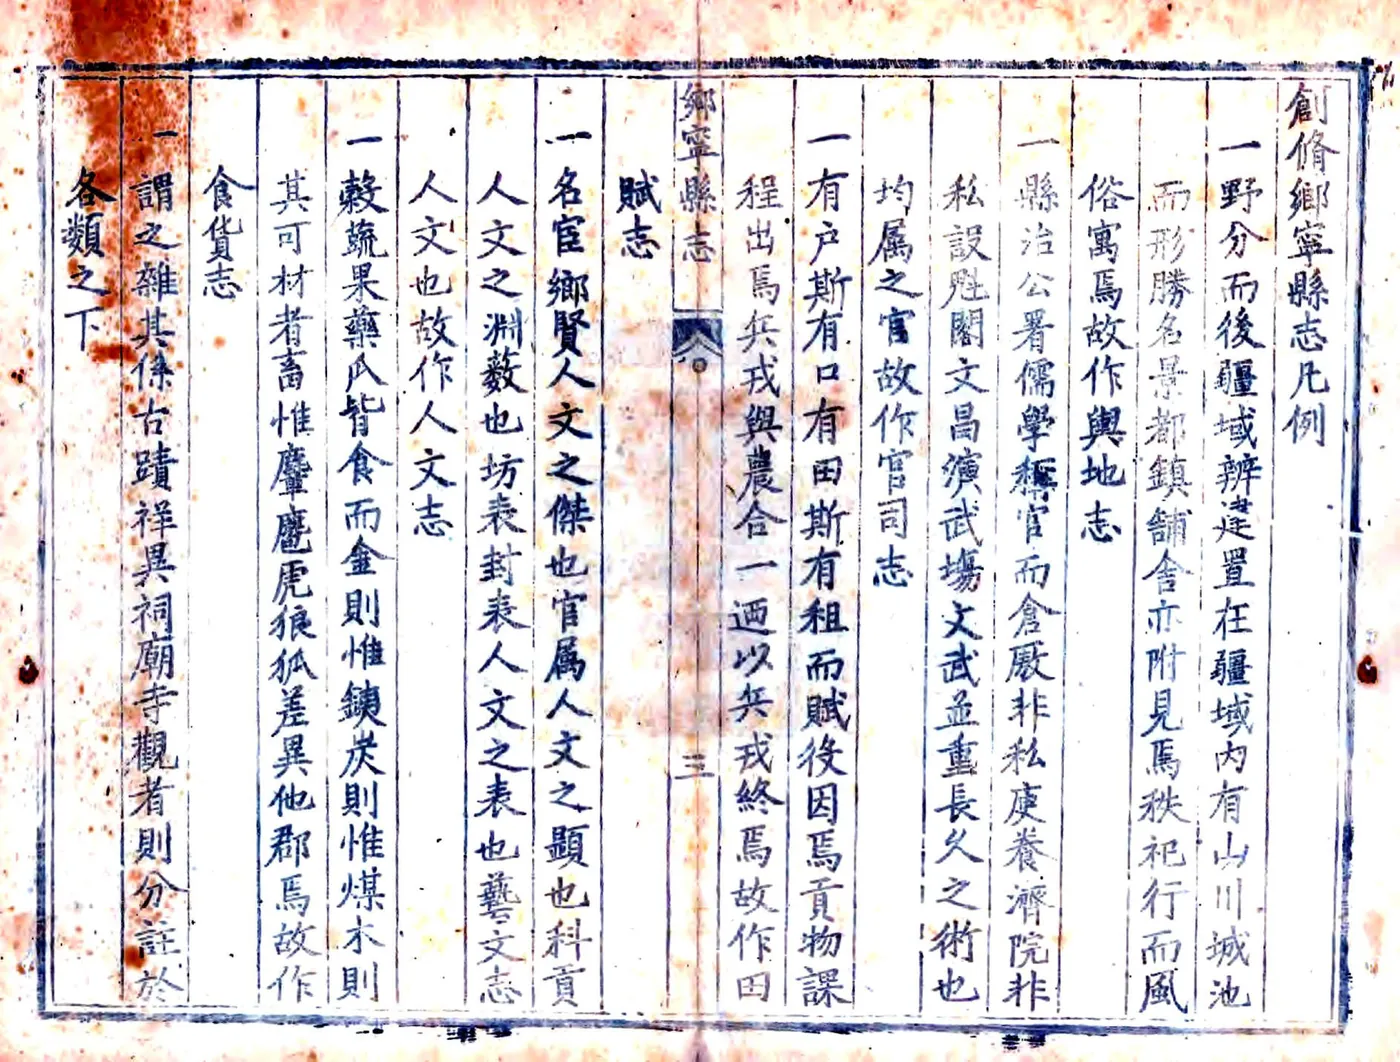 創脩鄉寧縣志凡例
一野分而後疆域辨建置在疆域內有山川城池
而形勝名景都鎮舖舍亦附見焉秩祀行而風
俗寓焉故作輿地志
一縣治公署儒學稱官而倉厫非私庾養濟院非
私設魁閣文昌演武塲文武並重長久之術也
均属之官故作官司志
一有户斯有口有田斯有租而賦役因焉貢物課
程出焉兵戎與農合一迺以兵戎終焉故作田
鄉寧縣志
三
賦志
一名宦鄉賢人文之傑也官属人文之顕也科貢
人文之淵藪也坊表封表人文之表也藝文志
人文也故作人文志
一穀蔬果藥瓜皆食而金則惟鐵炭則惟煤木則
其可材者畜惟麞麅虎狼狐差異他郡焉故作
食貨志
一謂之雜其係古蹟祥異祠廟寺觀者則分註於
各類之下